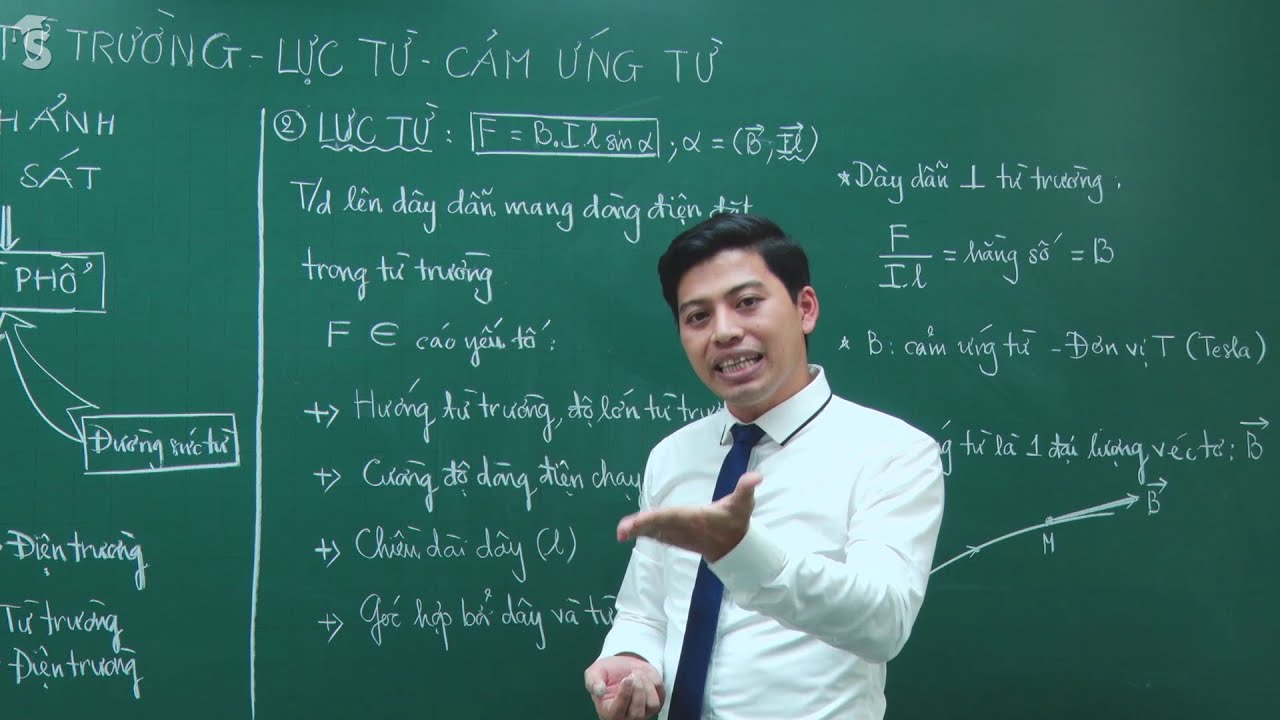 TỪ TRƯỜNG - LỰC TỪ - CẢM ỨNG TỪ
S
HẢNH
SÁT
PHỔ
Đường sức từ
Điện trường
Từ trường
Điện trường
② LỰC TỪ : F = B.I.l sin α ; α = (B⃗, I⃗l)
T/d lên dây dẫn mang dòng điện đặt
trong từ trường
F ∈ các yếu tố :
+> Hướng từ trường, độ lớn từ trư
+> Cường độ dòng điện chạy
+> Chiều dài dây (l)
+> Góc hợp bởi dây và từ
* Dây dẫn ⊥ từ trường :
F/I.l = hằng số = B
* B : cảm ứng từ - Đơn vị T (Tesla)
từ là 1 đại lượng véc tơ : B⃗
B⃗
M